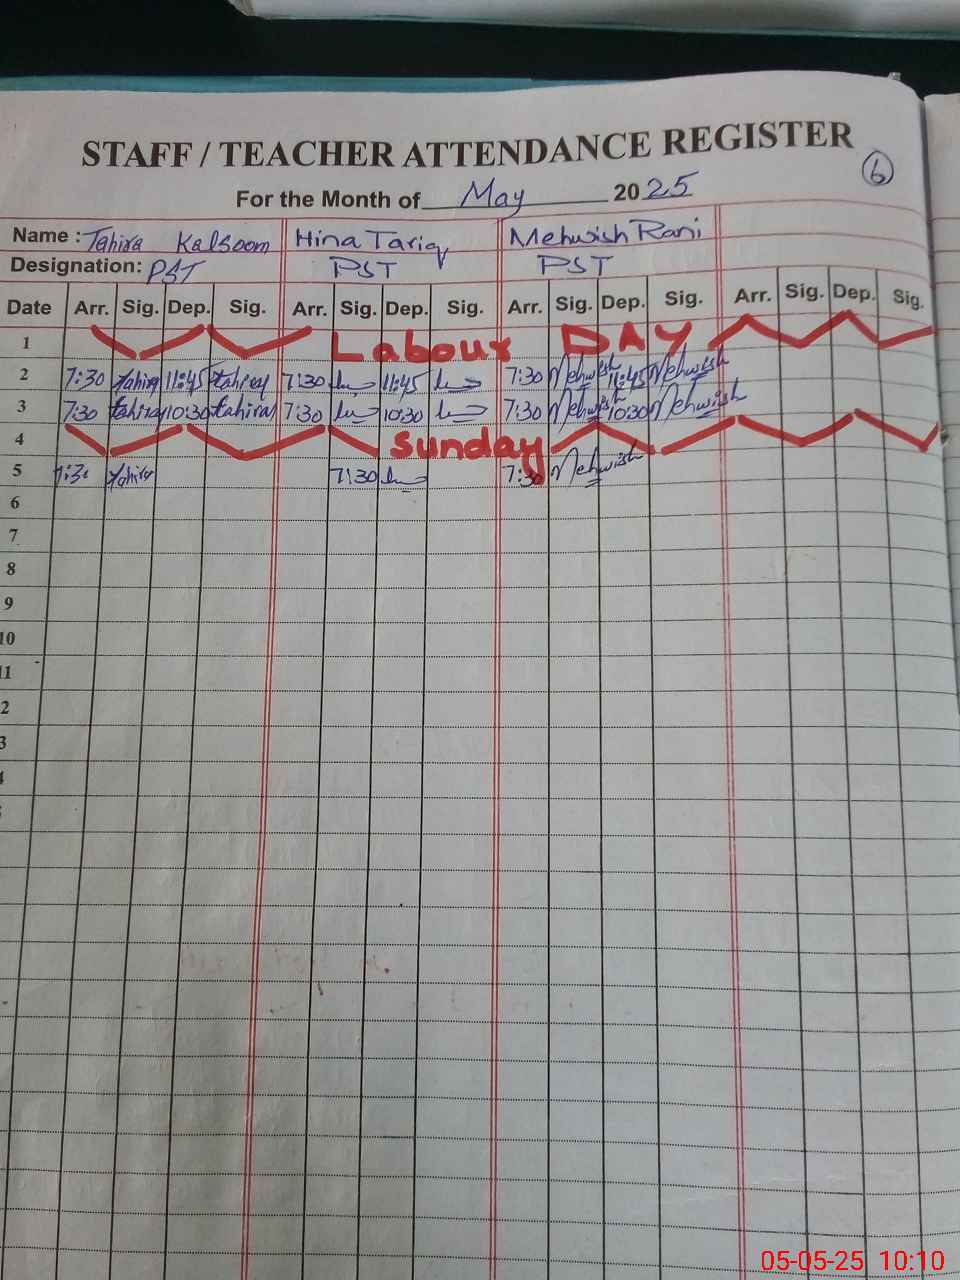 STAFF / TEACHER ATTENDANCE REGISTER
6
For the Month of May 2025
Name : Tahira Kalsoom Hina Tariq Mehwish Rani
Designation: PST PST PST
Date Arr. Sig. Dep. Sig. Arr. Sig. Dep. Sig. Arr. Sig. Dep. Sig. Arr. Sig. Dep. Sig.
1 Labour DAY
2 7:30 tahira 11:45 tahira 7:30 11:45 7:30 Mehwish 11:45 Mehwish
3 7:30 tahira 10:30 tahira 7:30 10:30 7:30 Mehwish 10:30 Mehwish
4 Sunday
5 7:30 tahira 7:30 7:30 Mehwish
6
7
8
9
10
11
2
3
05-05-25 10:10